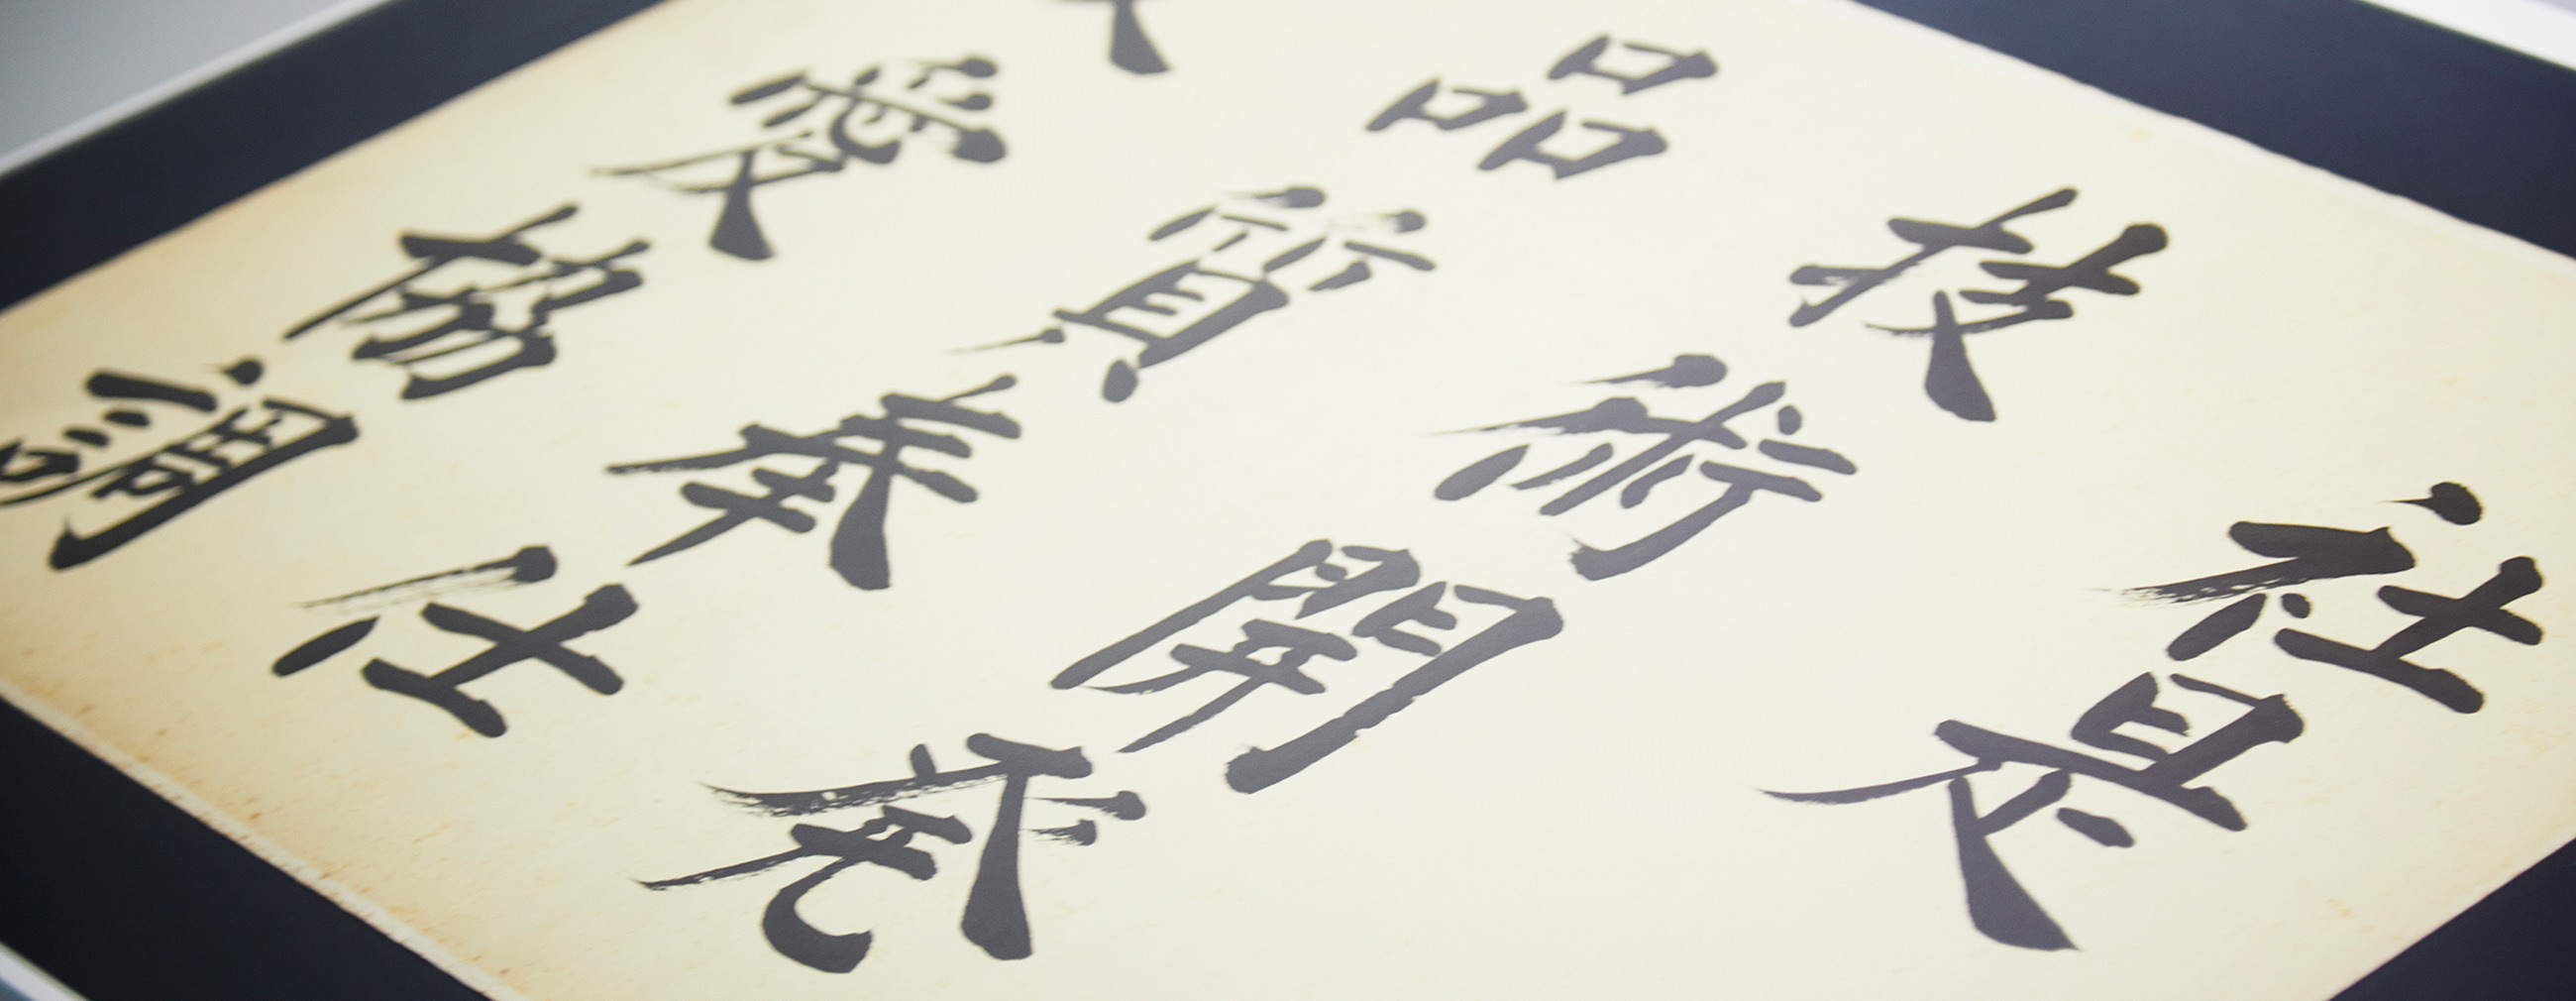 社是
技術開発
品質奉仕
愛協調